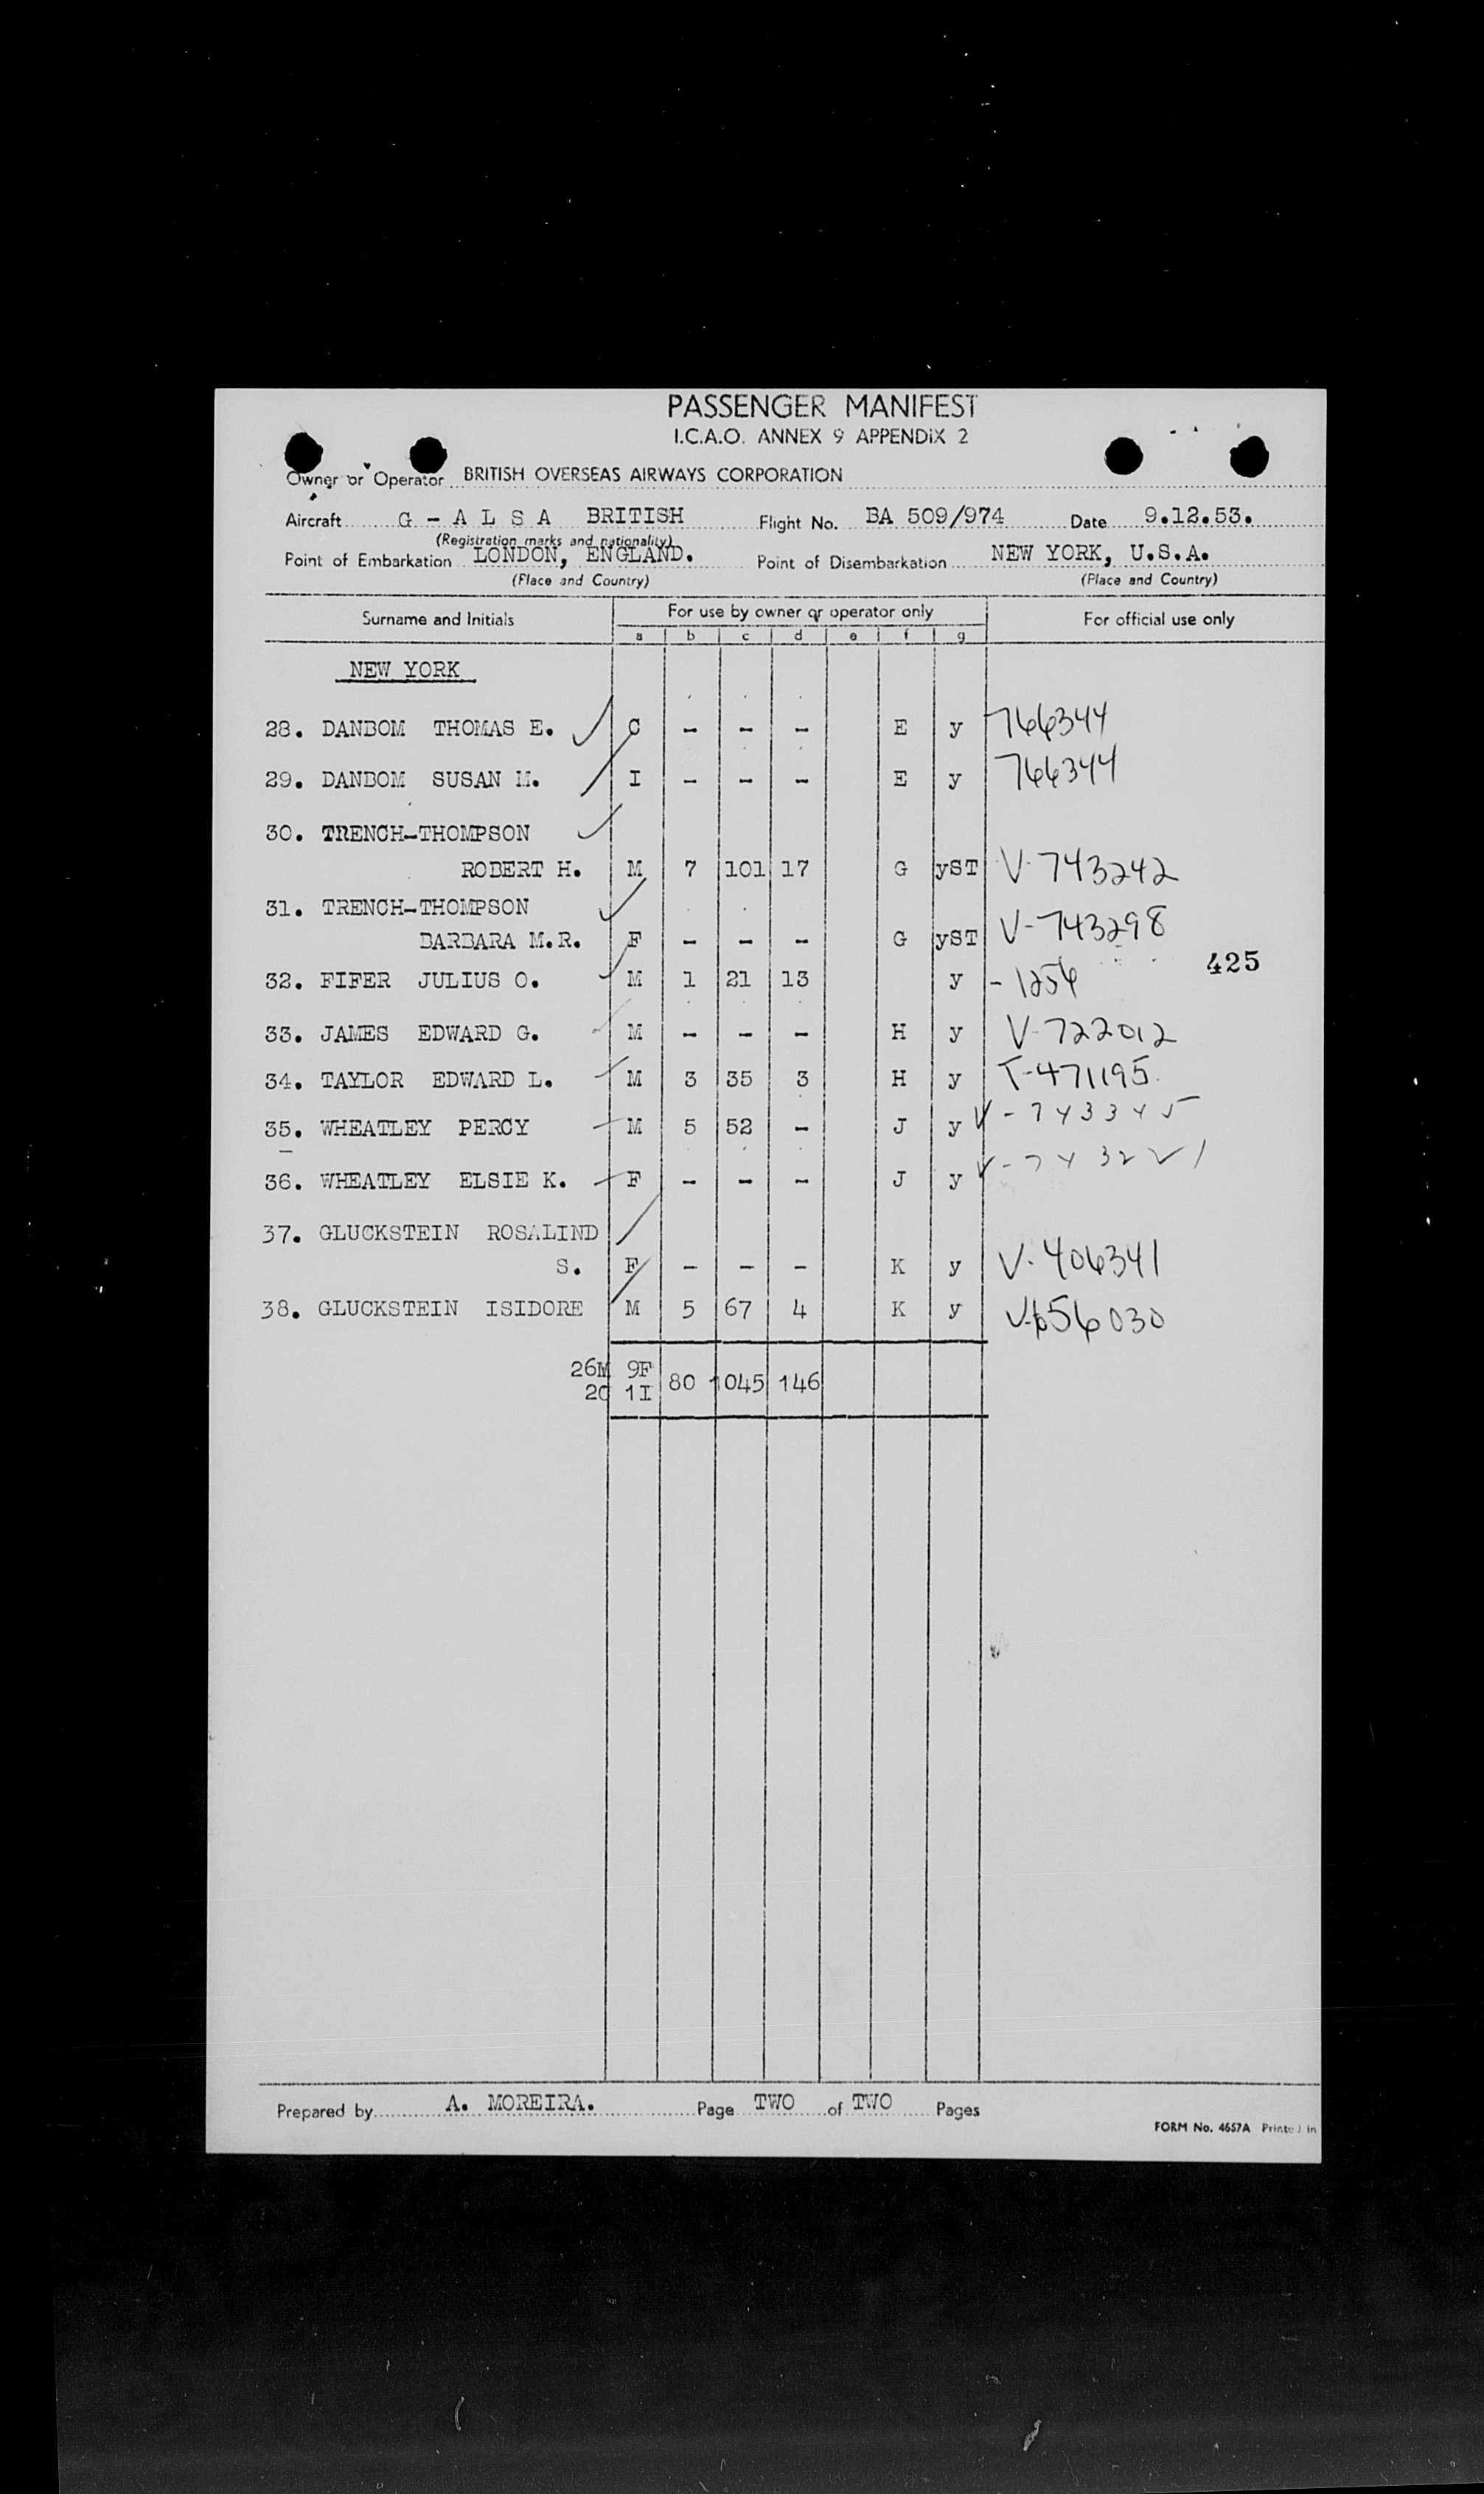 PASSENGER MANIFEST
I.C.A.O. ANNEX 9 APPENDIX 2
Owner or Operator BRITISH OVERSEAS AIRWAYS CORPORATION
Aircraft G - A L S A BRITISH Flight No. BA 509/974 Date 9.12.53.
(Registration marks and nationality)
Point of Embarkation LONDON, ENGLAND. Point of Disembarkation NEW YORK, U.S.A.
(Place and Country) (Place and Country)
Surname and Initials For use by owner or operator only For official use only
a b c d e f g
NEW YORK
28. DANBOM THOMAS E. C - - - E y 766344
29. DANBOM SUSAN M. I - - - E y 766344
30. TRENCH-THOMPSON
ROBERT H. M 7 101 17 G yST V-743242
31. TRENCH-THOMPSON
BARBARA M.R. F - - - G yST V-743298
425
32. FIFER JULIUS O. M 1 21 13 y - 1256
33. JAMES EDWARD G. M - - - H y V-722012
34. TAYLOR EDWARD L. M 3 35 3 H y T-471195
35. WHEATLEY PERCY M 5 52 - J y V-743345
36. WHEATLEY ELSIE K. F - - - J y V-743221
37. GLUCKSTEIN ROSALIND
S. F - - - K y V-406341
38. GLUCKSTEIN ISIDORE M 5 67 4 K y V-656030
26M 9F 80 1045 146
2C 1I
Prepared by A. MOREIRA. Page TWO of TWO Pages
FORM No. 4657A Printed in